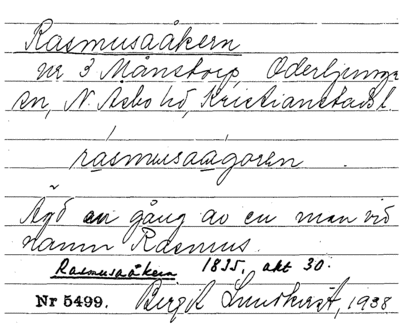 Rasmusaåkern
nr 3 Månstorp, Oderljunga
sn, N. Åsbo hd, Kristianstads l.
rasmusaagoren
Ägd en gång av en man vid
namn Rasmus.
Rasmusaåkern 1835, akt 30.
Nr 5499. Birgit Lundkvist, 1938